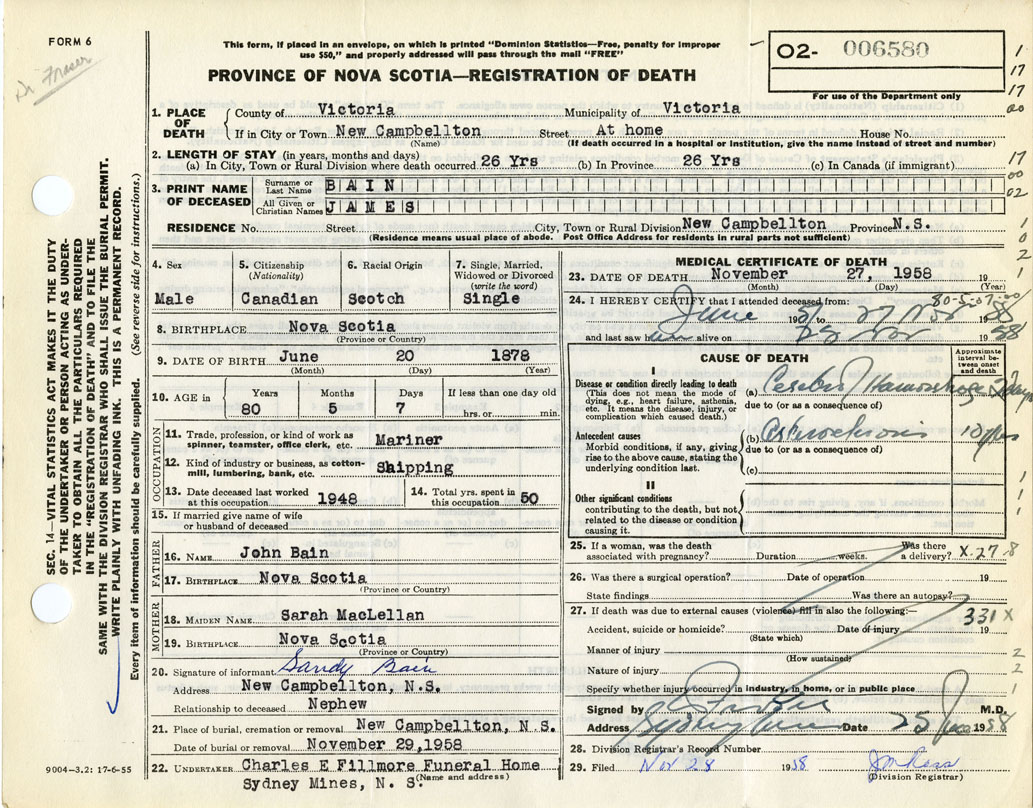 FORM 6
Dr Fraser
This form, if placed in an envelope, on which is printed "Dominion Statistics—Free, penalty for improper
use $50," and properly addressed will pass through the mail "FREE"
PROVINCE OF NOVA SCOTIA—REGISTRATION OF DEATH
02- 006580
For use of the Department only
1. PLACE OF DEATH
County of Victoria Municipality of Victoria
If in City or Town New Campbellton Street At home House No.
(Name) (If death occurred in a hospital or institution, give the name instead of street and number)
2. LENGTH OF STAY (in years, months and days)
(a) In City, Town or Rural Division where death occurred 26 Yrs (b) In Province 26 Yrs (c) In Canada (if immigrant)
3. PRINT NAME OF DECEASED
Surname or Last Name BAIN
All Given or Christian Names JAMES
RESIDENCE No. Street City, Town or Rural Division New Campbellton Province N.S.
(Residence means usual place of abode. Post Office Address for residents in rural parts not sufficient)
4. Sex
Male
5. Citizenship
(Nationality)
Canadian
6. Racial Origin
Scotch
7. Single, Married,
Widowed or Divorced
(write the word)
Single
8. BIRTHPLACE Nova Scotia
(Province or Country)
9. DATE OF BIRTH June 20 1878
(Month) (Day) (Year)
10. AGE in
Years Months Days If less than one day
80 5 7 hrs. or min.
OCCUPATION
11. Trade, profession, or kind of work as
spinner, teamster, office clerk, etc. Mariner
12. Kind of industry or business, as cotton-
mill, lumbering, bank, etc. Shipping
13. Date deceased last worked
at this occupation 1948
14. Total yrs. spent in
this occupation 50
15. If married give name of wife
or husband of deceased
FATHER
16. NAME John Bain
17. BIRTHPLACE Nova Scotia
(Province or Country)
MOTHER
18. MAIDEN NAME Sarah MacLellan
19. BIRTHPLACE Nova Scotia
(Province or Country)
20. Signature of informant Sandy Bain
Address New Campbellton, N.S.
Relationship to deceased Nephew
21. Place of burial, cremation or removal New Campbellton, N S.
Date of burial or removal November 29,1958
22. UNDERTAKER Charles E Fillmore Funeral Home
(Name and address)
Sydney Mines, N. S.
MEDICAL CERTIFICATE OF DEATH
23. DATE OF DEATH November 27, 1958 19
(Month) (Day) (Year)
80-5-07-00
24. I HEREBY CERTIFY that I attended deceased from:
June 1958 to 27 Nov 1958
and last saw him alive on 25 Nov 1958
CAUSE OF DEATH
Approximate
interval be-
tween onset
and death
I
Disease or condition directly leading to death
(This does not mean the mode of
dying, e.g., heart failure, asthenia,
etc. It means the disease, injury, or
complication which caused death.)
(a) Cerebral Hamorrhage 2 days
due to (or as a consequence of)
Antecedent causes
Morbid conditions, if any, giving
rise to the above cause, stating the
underlying condition last.
(b) 10 yrs
due to (or as a consequence of)
(c)
II
Other significant conditions
contributing to the death, but not
related to the disease or condition
causing it.
25. If a woman, was the death
associated with pregnancy? Duration weeks. Was there
a delivery? X-27 8
26. Was there a surgical operation? Date of operation 19
State findings Was there an autopsy?
27. If death was due to external causes (violence) fill in also the following:—
331 X
Accident, suicide or homicide? Date of injury 19
(State which)
Manner of injury
(How sustained)
Nature of injury
Specify whether injury occurred in industry, in home, or in public place
Signed by M.D.
Address Sydney Mines Date 1958
28. Division Registrar's Record Number
29. Filed Nov 28 1958 J M Ross
(Division Registrar)
SEC. 14—VITAL STATISTICS ACT MAKES IT THE DUTY
OF THE UNDERTAKER OR PERSON ACTING AS UNDER-
TAKER TO OBTAIN ALL THE PARTICULARS REQUIRED
IN THE "REGISTRATION OF DEATH" AND TO FILE THE
SAME WITH THE DIVISION REGISTRAR WHO SHALL ISSUE THE BURIAL PERMIT.
WRITE PLAINLY WITH UNFADING INK. THIS IS A PERMANENT RECORD.
Every item of information should be carefully supplied. (See reverse side for instructions.)
9004-3.2: 17-6-55
1
17
17
00
17
00
02
1
0
2
1
1
1
1
2
2
1